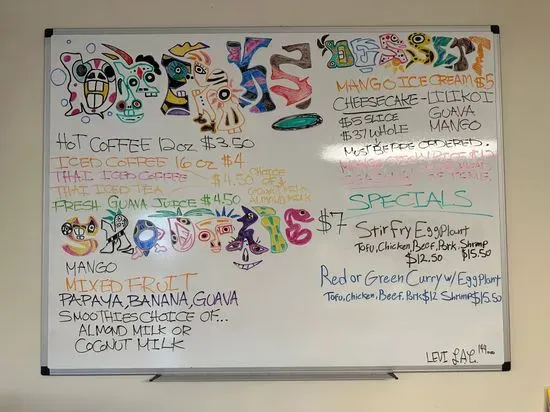 DRINKS
HOT COFFEE 12oz $3.50
ICED COFFEE 16 oz $4
THAI ICED COFFEE
THAI ICED TEA
$4.50
CHOICE OF
ALMOND MILK
FRESH GUAVA JUICE $4.50
SMOOTHIE $7
MANGO
MIXED FRUIT
PAPAYA, BANANA, GUAVA
SMOOTHIES CHOICE OF...
ALMOND MILK OR
COCONUT MILK
DESSERT
MANGO ICE CREAM $5
CHEESECAKE - LILIKOI
$5 SLICE GUAVA
$37 WHOLE MANGO
MUST BE PRE ORDERED
SPECIALS
Stir Fry EggPlant
Tofu, Chicken, Beef, Pork, Shrimp
$12.50 $15.50
Red or Green Curry w/ EggPlant
Tofu, Chicken, Beef, Pork $12 Shrimp $15.50
LEVI